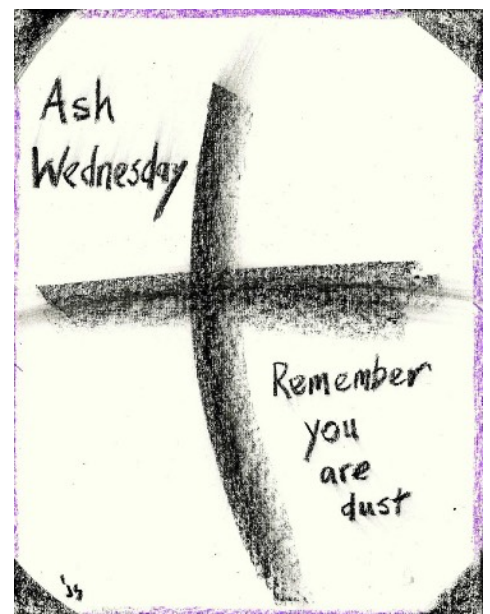 Ash
Wednesday
Remember
you
are
dust